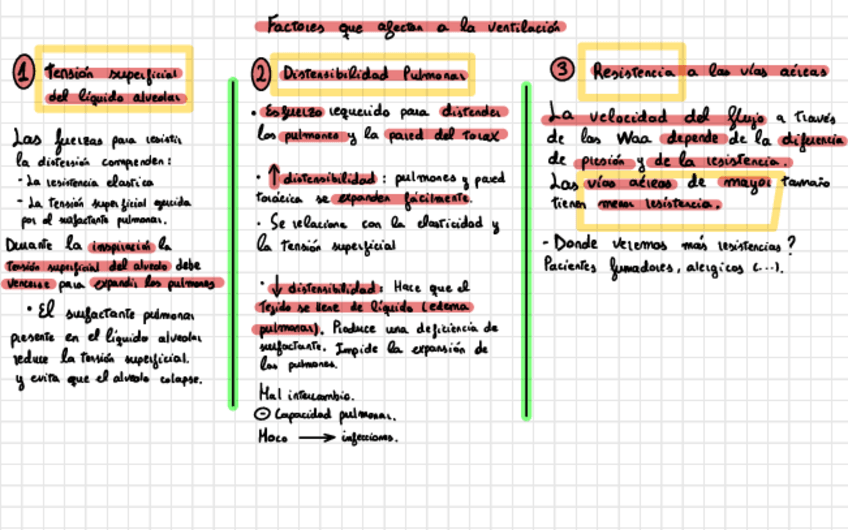 Factores que afectan a la ventilación
1 Tensión superficial
del líquido alveolar
Las fuerzas para resistir
la distersión comprenden:
- La resistencia elastica
- La tensión superficial ejercida
por el surfactante pulmonar.
Durante la inspiración la
tensión superficial del alveolo debe
vencerse para expandir los pulmones
• El surfactante pulmonar
presente en el líquido alveolar
reduce la tensión superficial.
y evita que el alveolo colapse.
2 Distensibilidad Pulmonar
• Esfuerzo requerido para distender
los pulmones y la pared del torax
• ↑ distensibilidad : pulmones y pared
torácica se expanden fácilmente.
• Se relaciona con la elasticidad y
la tensión superficial
• ↓ distensibilidad: Hace que el
Tejido se llene de líquido (edema
pulmonar). Produce una deficiencia de
surfactante. Impide la expansión de
los pulmones.
Mal intercambio.
⊖ Capacidad pulmonar.
Moco → infecciones.
3 Resistencia a las vías aéreas
La velocidad del flujo a través
de las Waa depende de la diferencia
de presión y de la resistencia.
Las vías aéreas de mayor tamaño
tienen menor resistencia.
- Donde veremos más resistencias?
Pacientes fumadores, alergicos (...).